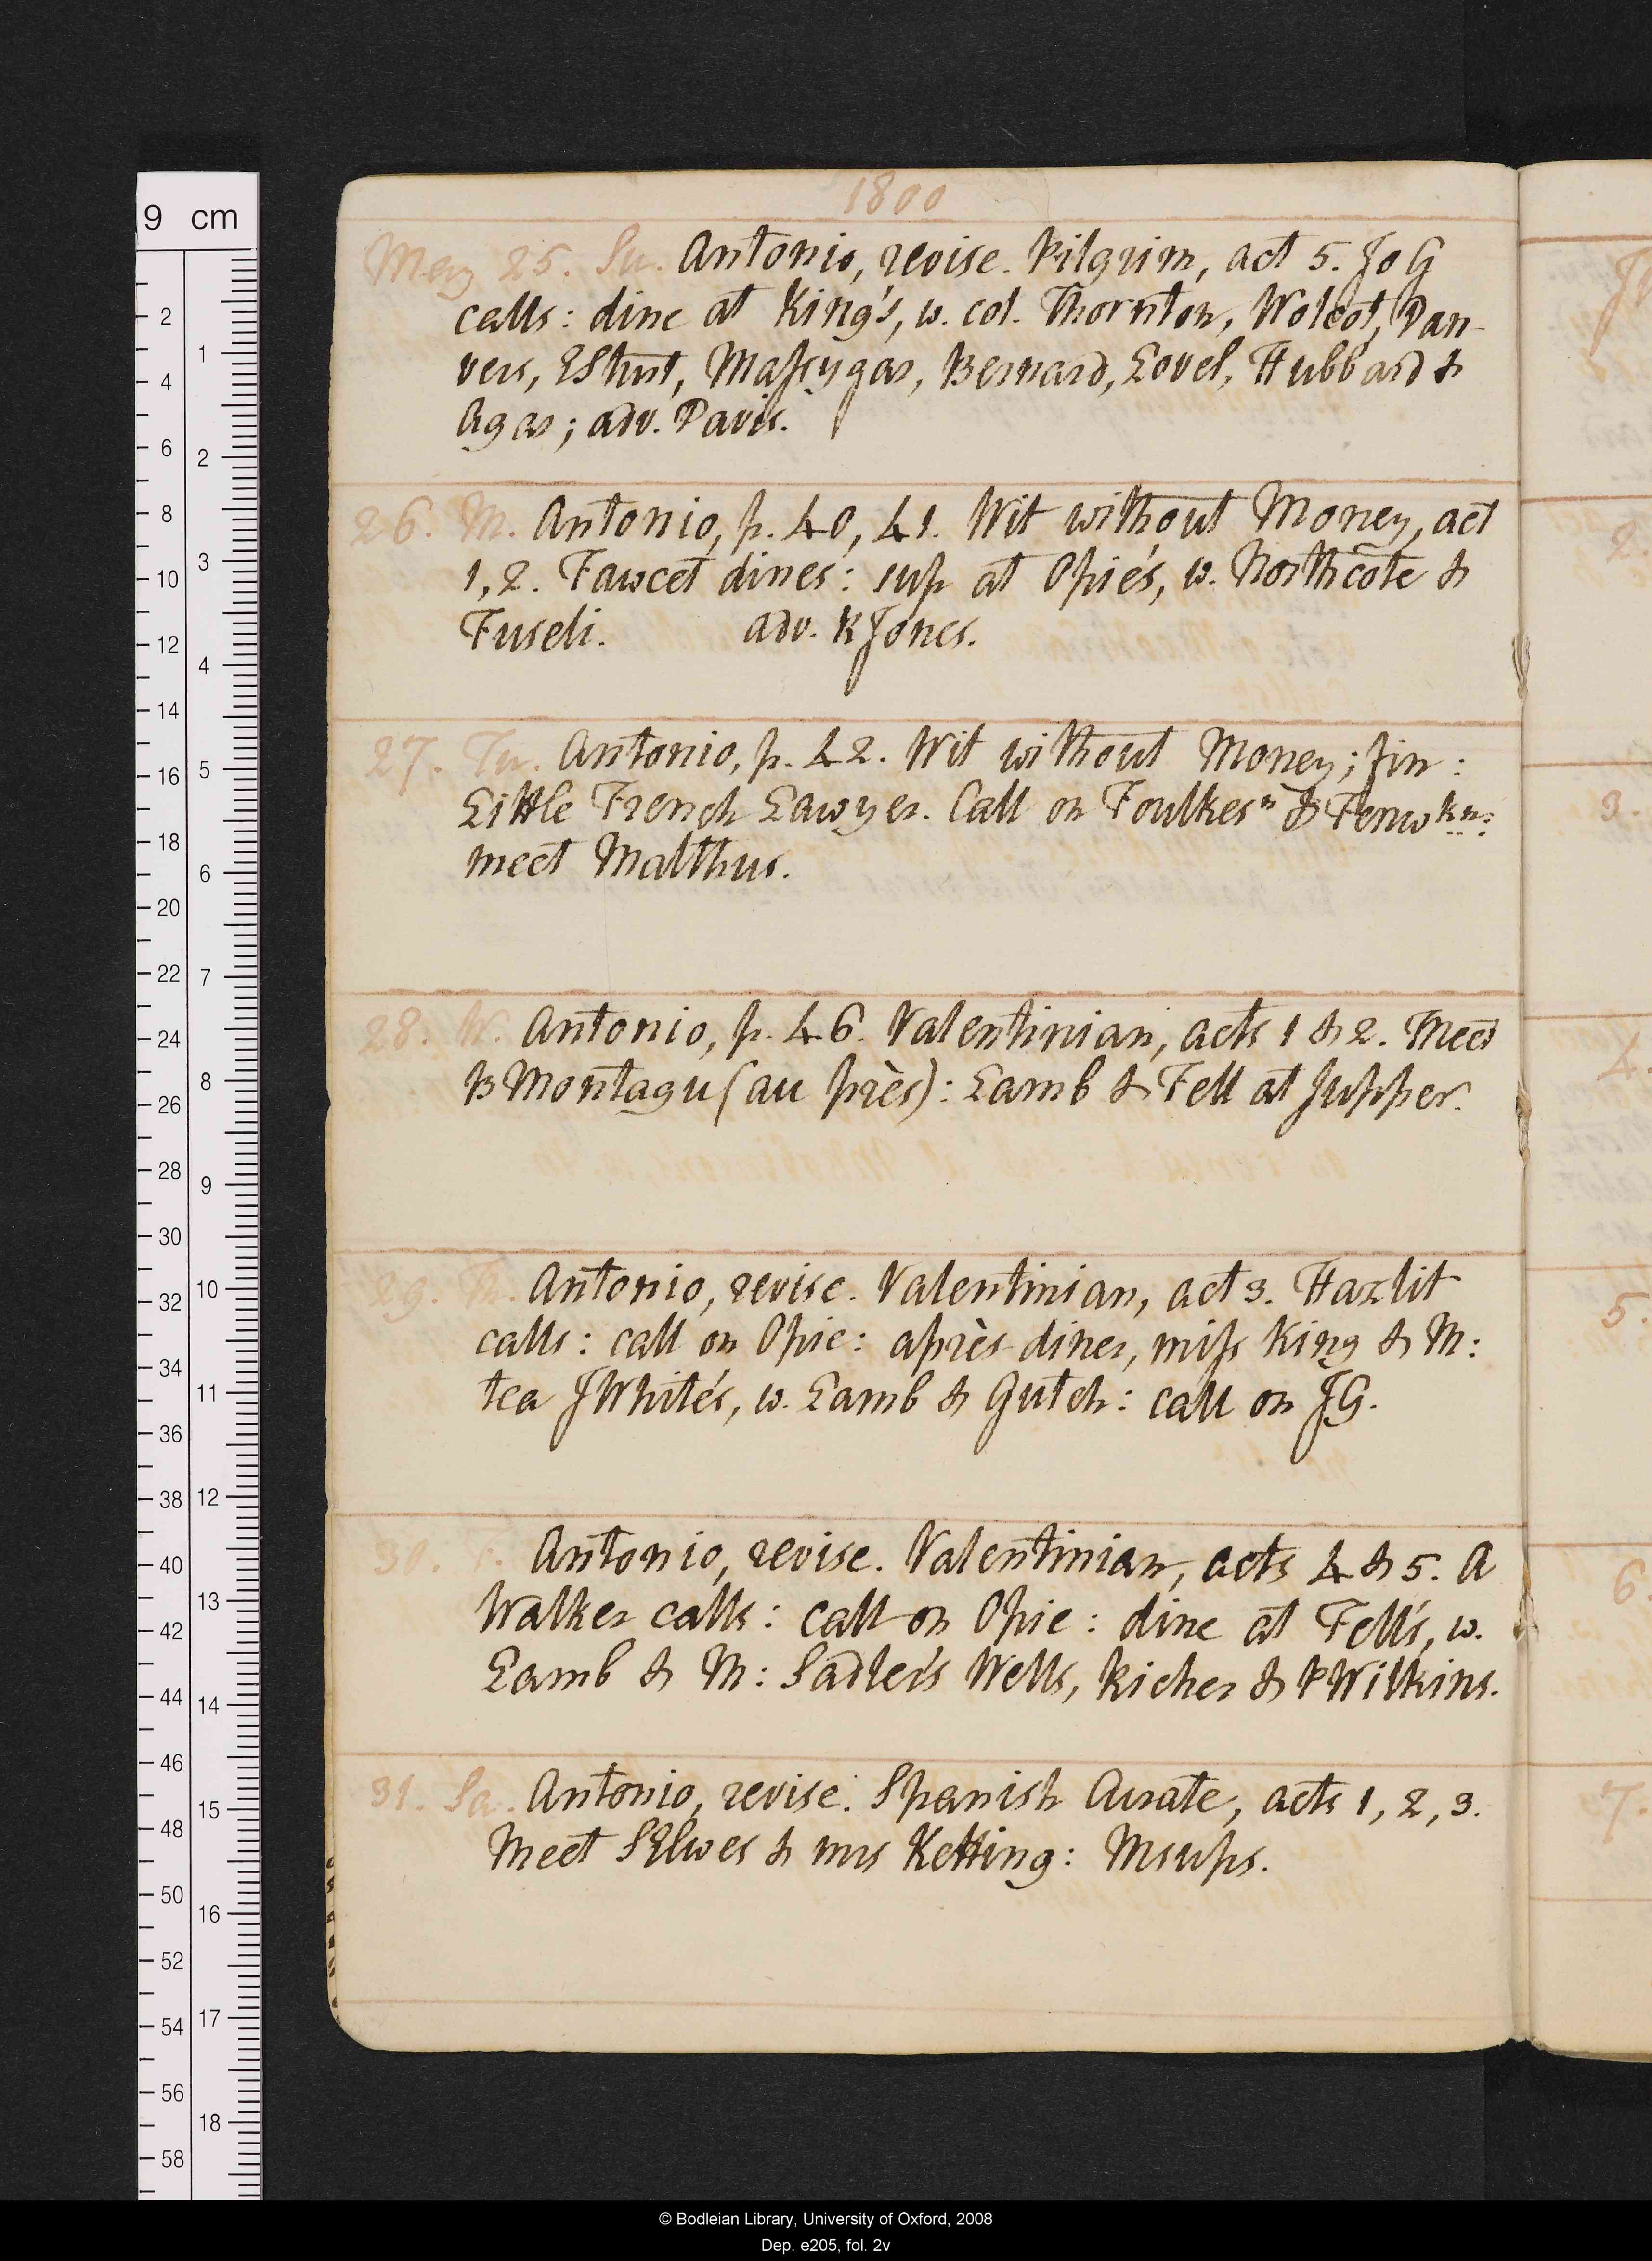 1800
May 25. Su. Antonio, revise. Pilgrim, act 5. Jo G
calls: dine at King's, w. col. Thornton, Wolcot, Dan-
vers, EShust, Massygar, Bernard, Lovel, Hubbard &
Agar; adv. Davis.
26. M. Antonio, p. 40, 41. Wit without Money, act
1, 2. Fawcet dines: sup at Opie's, w. Northcote &
Fuseli. adv. RJones.
27. Tu. Antonio, p. 42. Wit without Money; fin:
Little French Lawyer. Call on Foulkes n & Fenwk n:
meet Malthus.
28. W. Antonio, p. 46. Valentinian, acts 1 & 2. Meet
BMontagu (au près): Lamb & Fell at supper.
29. Th. Antonio, revise. Valentinian, act 3. Hazlit
calls: call on Opie: après diner, miss King & M:
tea JWhite's, w. Lamb & Gutch: call on JG.
30. F. Antonio, revise. Valentinian, acts 4 & 5. A
Walker calls: call on Opie: dine at Fell's, w.
Lamb & M: Sadler's Wells, Richer & PWilkins.
31. Sa. Antonio, revise. Spanish Curate, acts 1, 2, 3.
Meet SElwes & mrs Ketting: M sups.
2.
3.
4.
5.
6.
7.
9 cm
2
4
6
8
10
12
14
16
18
20
22
24
26
28
30
32
34
36
38
40
42
44
46
48
50
52
54
56
58
1
2
3
4
5
6
7
8
9
10
11
12
13
14
15
16
17
18
© Bodleian Library, University of Oxford, 2008
Dep. e205, fol. 2v